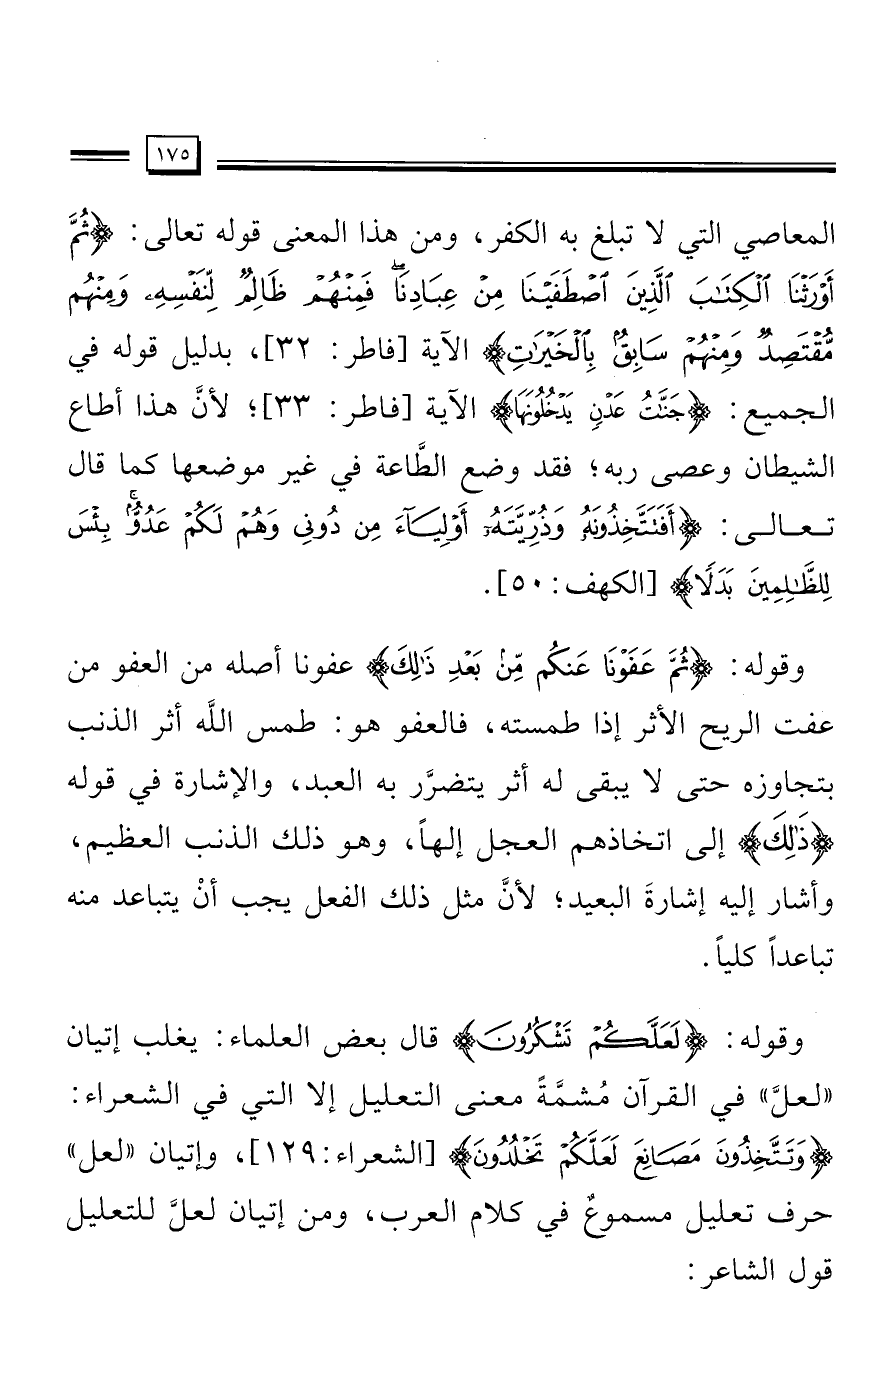 ١٧٥
المعاصي التي لا تبلغ به الكفر، ومن هذا المعنى قوله تعالى: ﴿ثُمَّ
أَوْرَثْنَا ٱلْكِتَٰبَ ٱلَّذِينَ ٱصْطَفَيْنَا مِنْ عِبَادِنَاۖ فَمِنْهُمْ ظَالِمٌ لِّنَفْسِهِۦ وَمِنْهُم
مُّقْتَصِدٌ وَمِنْهُمْ سَابِقٌۢ بِٱلْخَيْرَٰتِ﴾ الآية [فاطر: ٣٢]، بدليل قوله في
الجميع: ﴿جَنَّٰتُ عَدْنٍ يَدْخُلُونَهَا﴾ الآية [فاطر: ٣٣]؛ لأنَّ هذا أطاع
الشيطان وعصى ربه؛ فقد وضع الطَّاعة في غير موضعها كما قال
تعالى: ﴿أَفَتَتَّخِذُونَهُۥ وَذُرِّيَّتَهُۥٓ أَوْلِيَآءَ مِن دُونِى وَهُمْ لَكُمْ عَدُوٌّۢۚ بِئْسَ
لِلظَّٰلِمِينَ بَدَلًا﴾ [الكهف: ٥٠].
وقوله: ﴿ثُمَّ عَفَوْنَا عَنكُم مِّنۢ بَعْدِ ذَٰلِكَ﴾ عفونا أصله من العفو من
عفت الريح الأثر إذا طمسته، فالعفو هو: طمس اللَّه أثر الذنب
بتجاوزه حتى لا يبقى له أثر يتضرَّر به العبد، والإشارة في قوله
﴿ذَٰلِكَ﴾ إلى اتخاذهم العجل إلهاً، وهو ذلك الذنب العظيم،
وأشار إليه إشارةَ البعيد؛ لأنَّ مثل ذلك الفعل يجب أنْ يتباعد منه
تباعداً كلياً.
وقوله: ﴿لَعَلَّكُمْ تَشْكُرُونَ﴾ قال بعض العلماء: يغلب إتيان
«لعلَّ» في القرآن مُشمَّةً معنى التعليل إلا التي في الشعراء:
﴿وَتَتَّخِذُونَ مَصَانِعَ لَعَلَّكُمْ تَخْلُدُونَ﴾ [الشعراء: ١٢٩]، وإتيان «لعل»
حرف تعليل مسموعٌ في كلام العرب، ومن إتيان لعلَّ للتعليل
قول الشاعر: